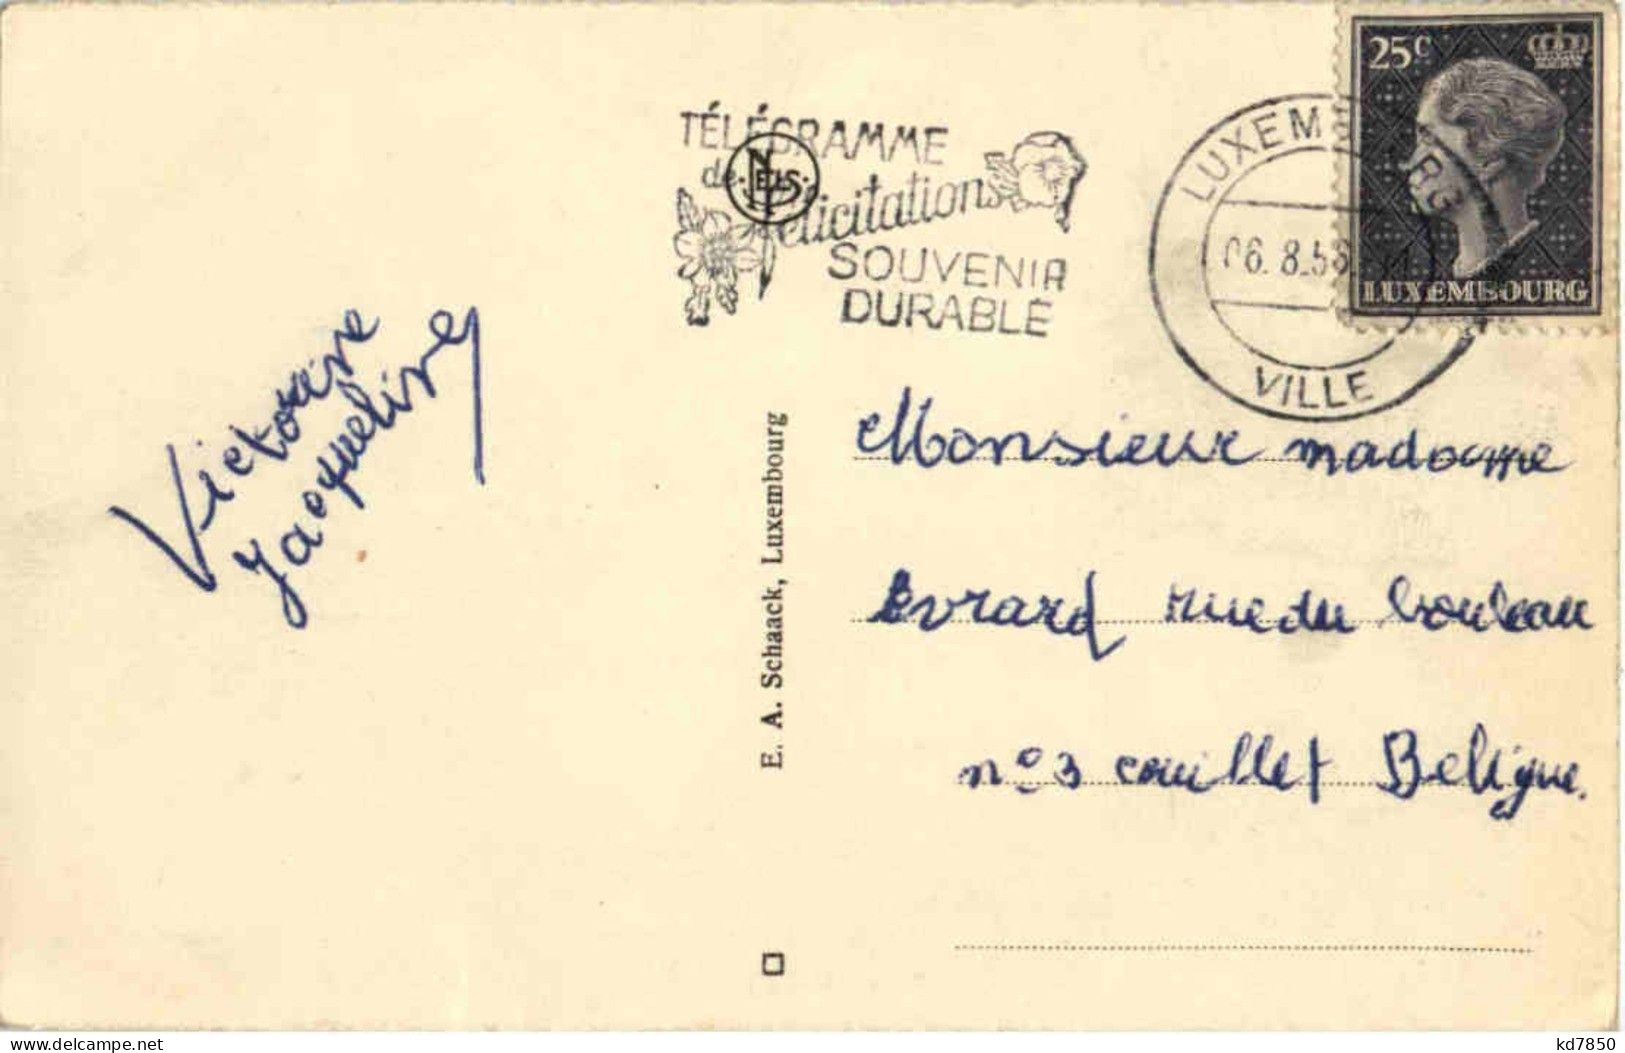 25c
LUXEMBOURG
TÉLÉGRAMME
de félicitations
SOUVENIR
DURABLE
NELS
LUXEMBOURG
06.8.58
VILLE
Victorine
Jacqueline
E. A. Schaack, Luxembourg
Monsieur madame
Evrard rue du bouleau
n° 3 couillet Beligue.
delcampe.net
kd7850